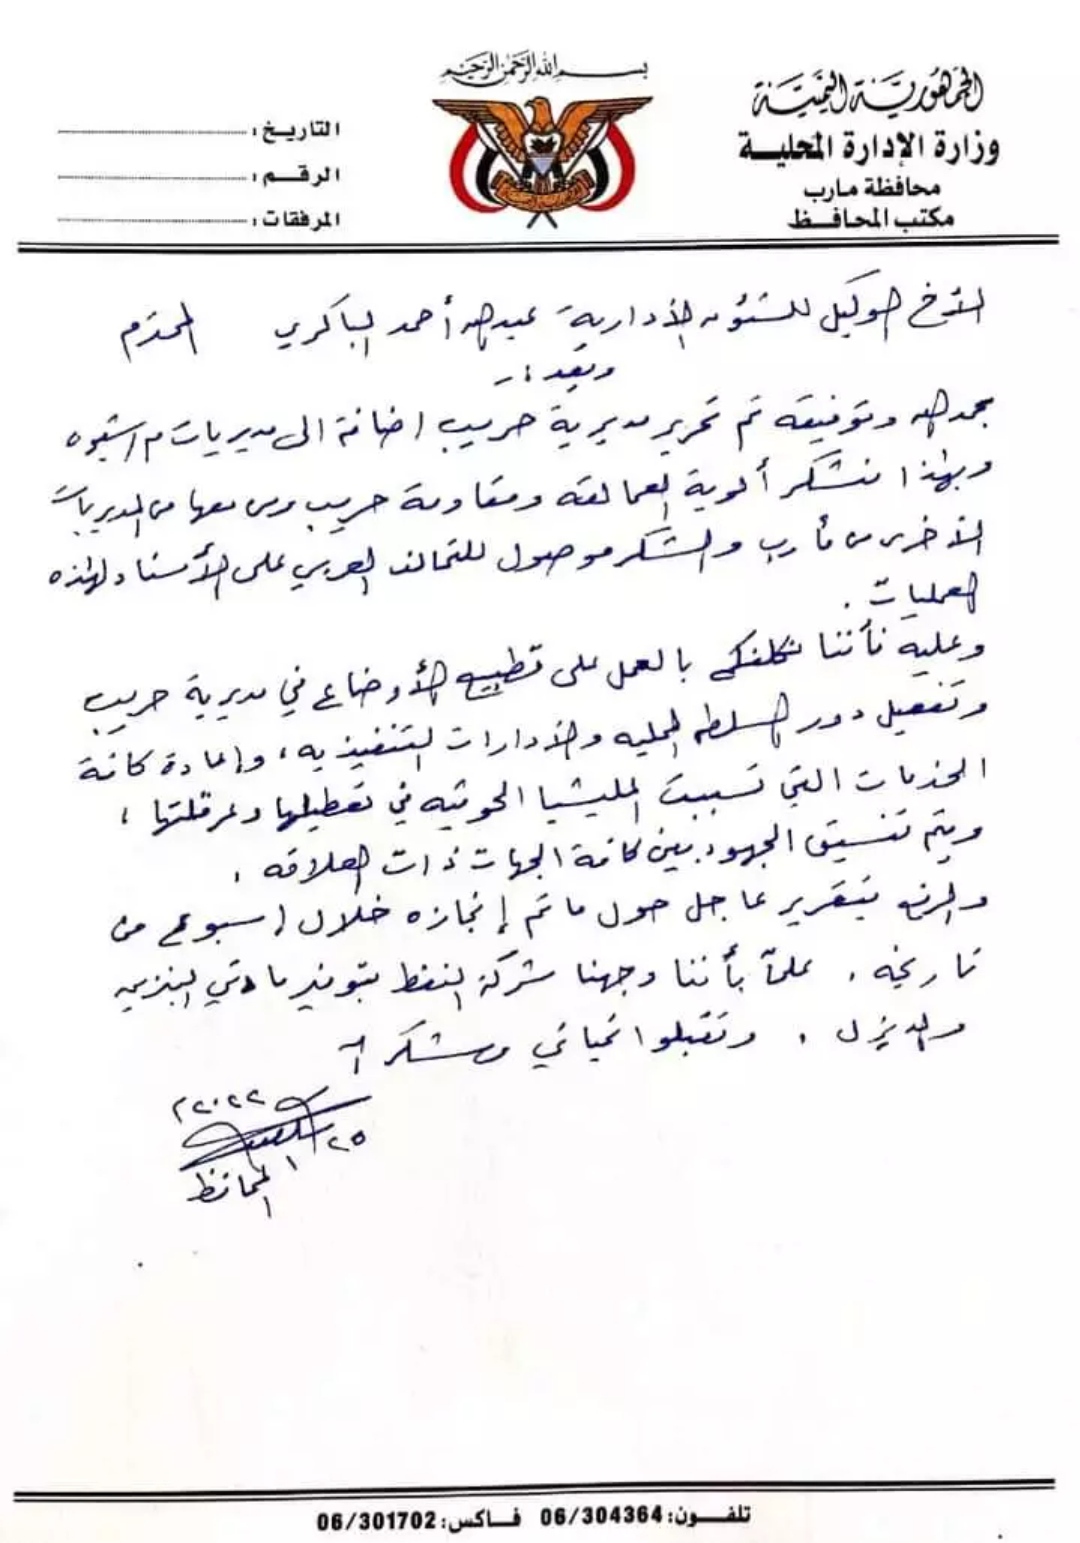 بسم الله الرحمن الرحيم
الجمهورية اليمنية
وزارة الإدارة المحلية
محافظة مارب
مكتب المحافظ
التاريخ:
الرقم:
المرفقات:
الأخ الوكيل للشئون الأدارية عبدالله أحمد الباكري المحترم
وبعد :-
بحمدالله وتوفيقه تم تحرير مديرية حريب اضافة الى مديريات م/ شبوه
وبهذا نشكر ألوية العمالقه ومقاومة حريب ومن معها من المديريات
الأخرى من مأرب والشكر موصول للتحالف العربي على الأسناد لهذه
العمليات .
وعليه فأننا نكلفكم بالعمل على تطبيع الأوضاع في مديرية حريب
وتفعيل دور السلطه المحليه والأدارات التنفيذيه، وإعادة كافة
الخدمات التي تسببت المليشيا الحوثيه في تعطيلها وعرقلتها ،
ويتم تنسيق الجهود بين كافة الجهات ذات العلاقه .
والرفع بتقرير عاجل حول ما تم إنجازه خلال اسبوع من
تاريخه . علماً بأننا وجهنا شركة النفط بتوفير مادتي البنزين
والديزل . وتقبلوا تحياتي وشكري
٢٠٢٢م
٢٥/١
المحافظ
تلفون: 06/304364 فاكس: 06/301702